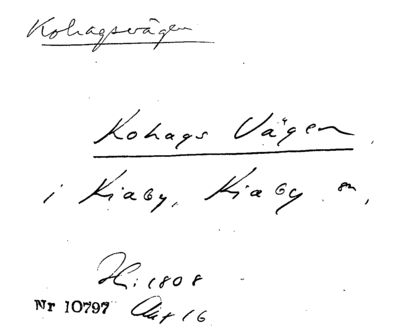 Kohagsvägen
Kohags Vägen
i Kiaby, Kiaby sn,
H: 1808
Nr 10797 Akt 16